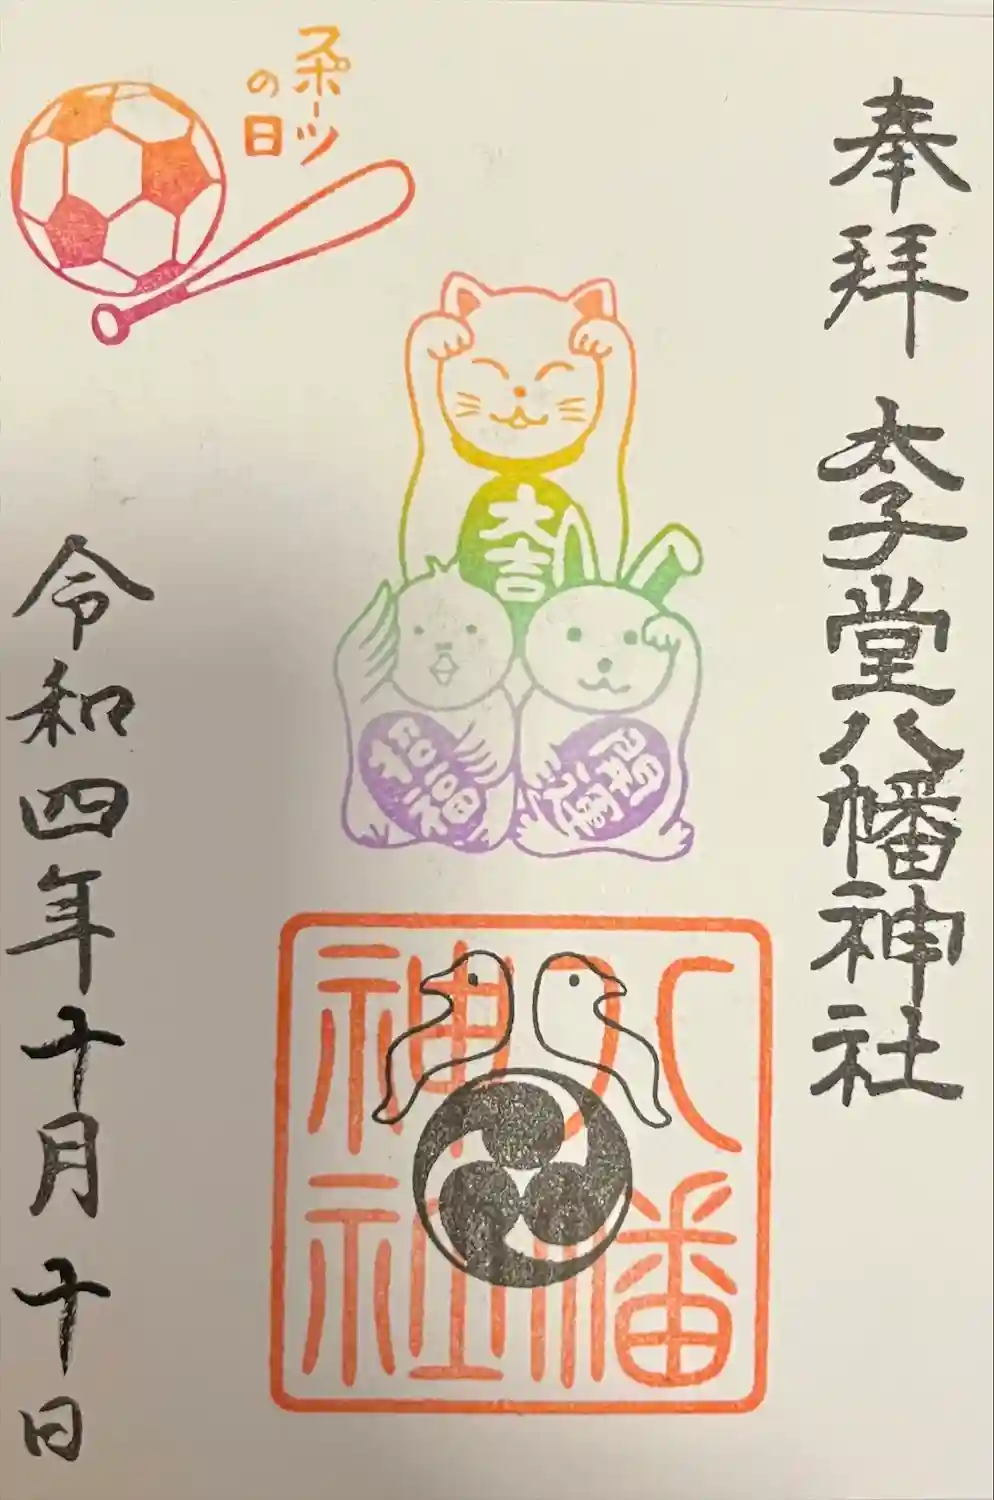 奉拝 太子堂八幡神社
スポーツ
の日
大吉
開運
招福
八幡
神社
令和四年十月十日